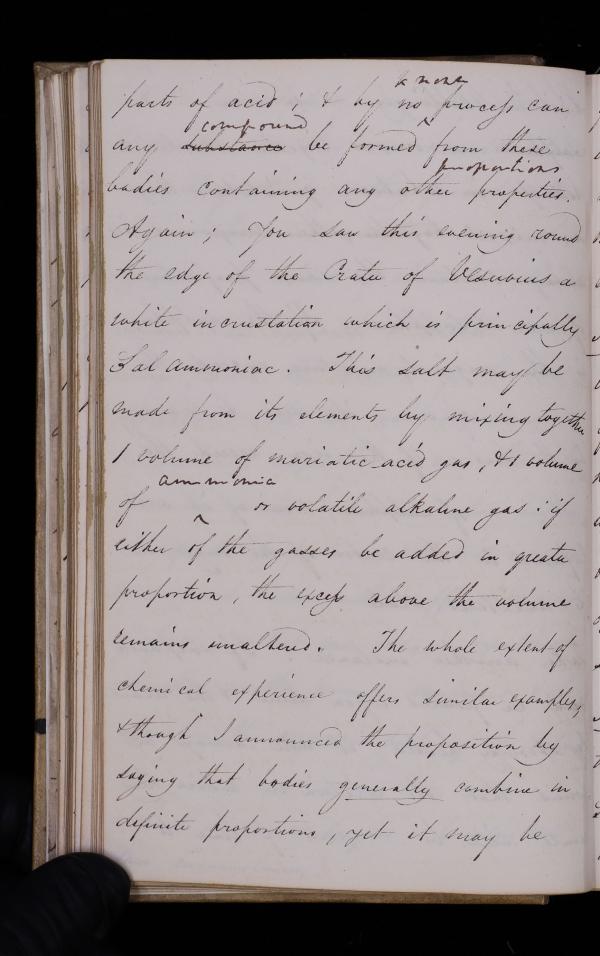 known
parts of acid ; & by no ^ process can
compound
any substance be formed from these
proportions
bodies containing any other properties.
Again ; You saw this evening round
the edge of the Crater of Vesuvius a
white incrustation which is principally
Sal ammoniac. This salt may be
made from its elements by mixing together
1 volume of muriatic acid gas, & 1 volume
ammonia
of ^ or volatile alkaline gas : if
either of the gasses be added in greater
proportion, the excess above the volume
remains unaltered. The whole extent of
chemical experience offers similar examples,
& though I announced the proposition by
saying that bodies generally combine in
definite proportions, yet it may be